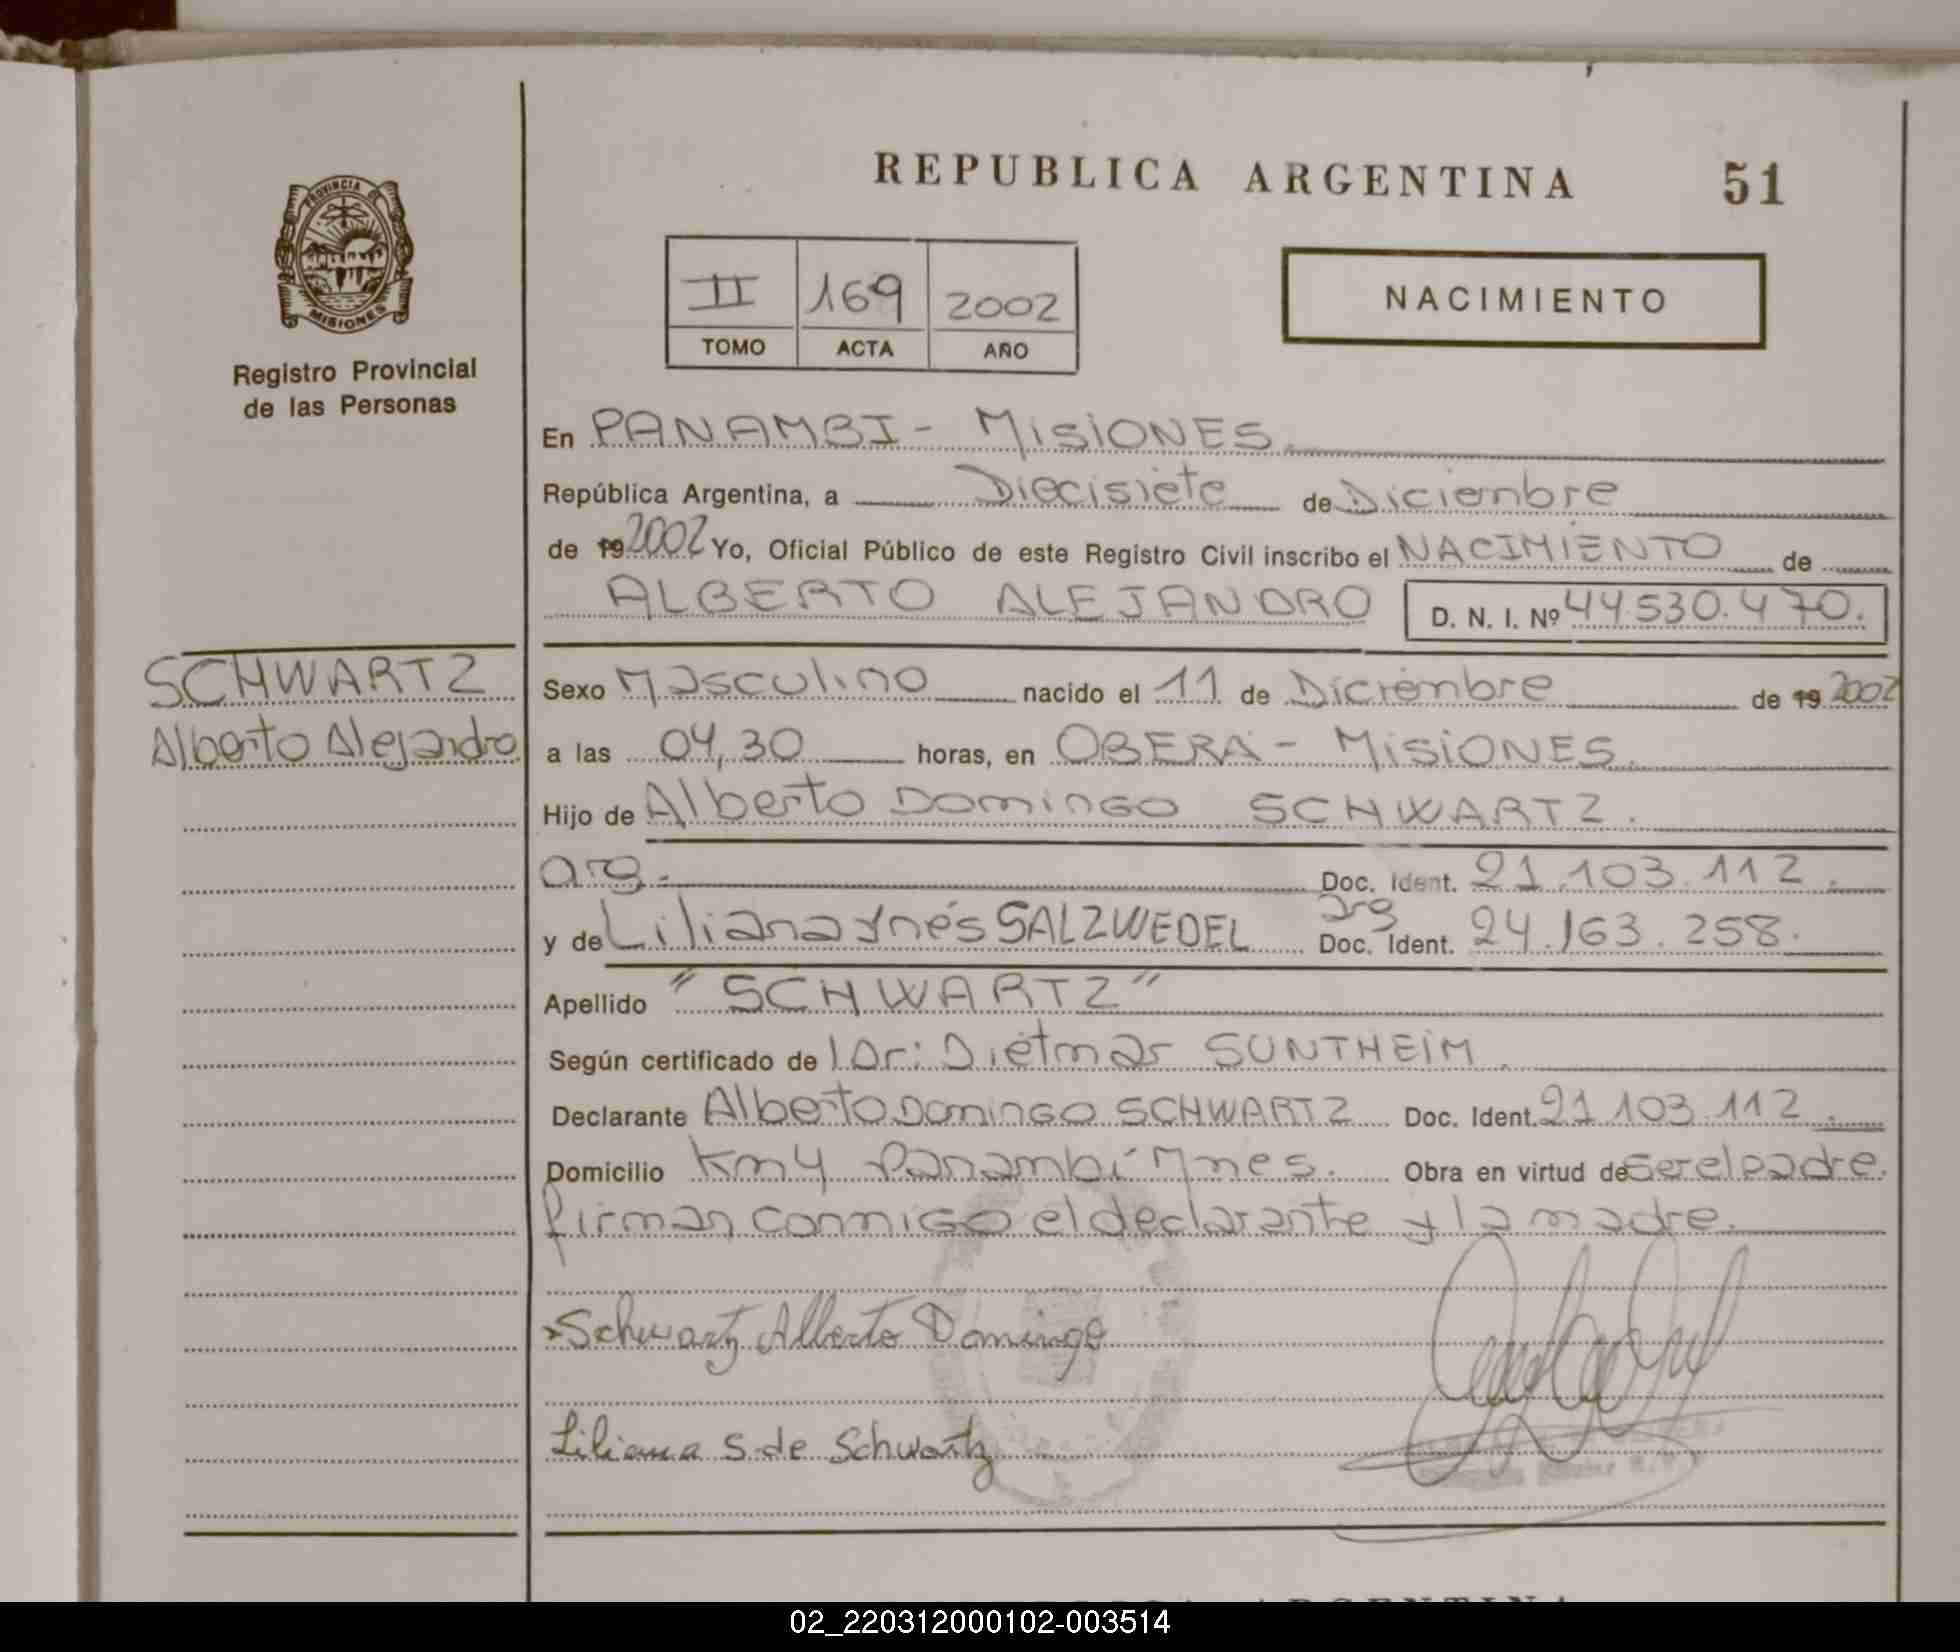 REPUBLICA ARGENTINA 51
PROVINCIA DE
MISIONES
Registro Provincial
de las Personas
II 169 2002
TOMO ACTA AÑO
NACIMIENTO
En PANAMBI - MISIONES.
República Argentina, a Diecisiete de Diciembre
de 19 2002 Yo, Oficial Público de este Registro Civil inscribo el NACIMIENTO de
ALBERTO ALEJANDRO D. N. I. Nº 44.530.470.
SCHWARTZ
Alberto Alejandro
Sexo Masculino nacido el 11 de Diciembre de 19 2002
a las 04,30 horas, en OBERA - MISIONES.
Hijo de Alberto DOMINGO SCHWARTZ.
arg. Doc. Ident. 21.103.112.
y de Liliana Ynés SALZWEDEL arg Doc. Ident. 24.163.258.
Apellido "SCHWARTZ"
Según certificado de Dr: Dietmar SUNTHEIM.
Declarante Alberto DOMINGO SCHWARTZ Doc. Ident. 21.103.112.
Domicilio Km 4 Panambí Mnes. Obra en virtud de ser el padre.
firman conmigo el declarante y la madre.
Schwartz Alberto Domingo
Liliana S. de Schwartz
02_220312000102-003514